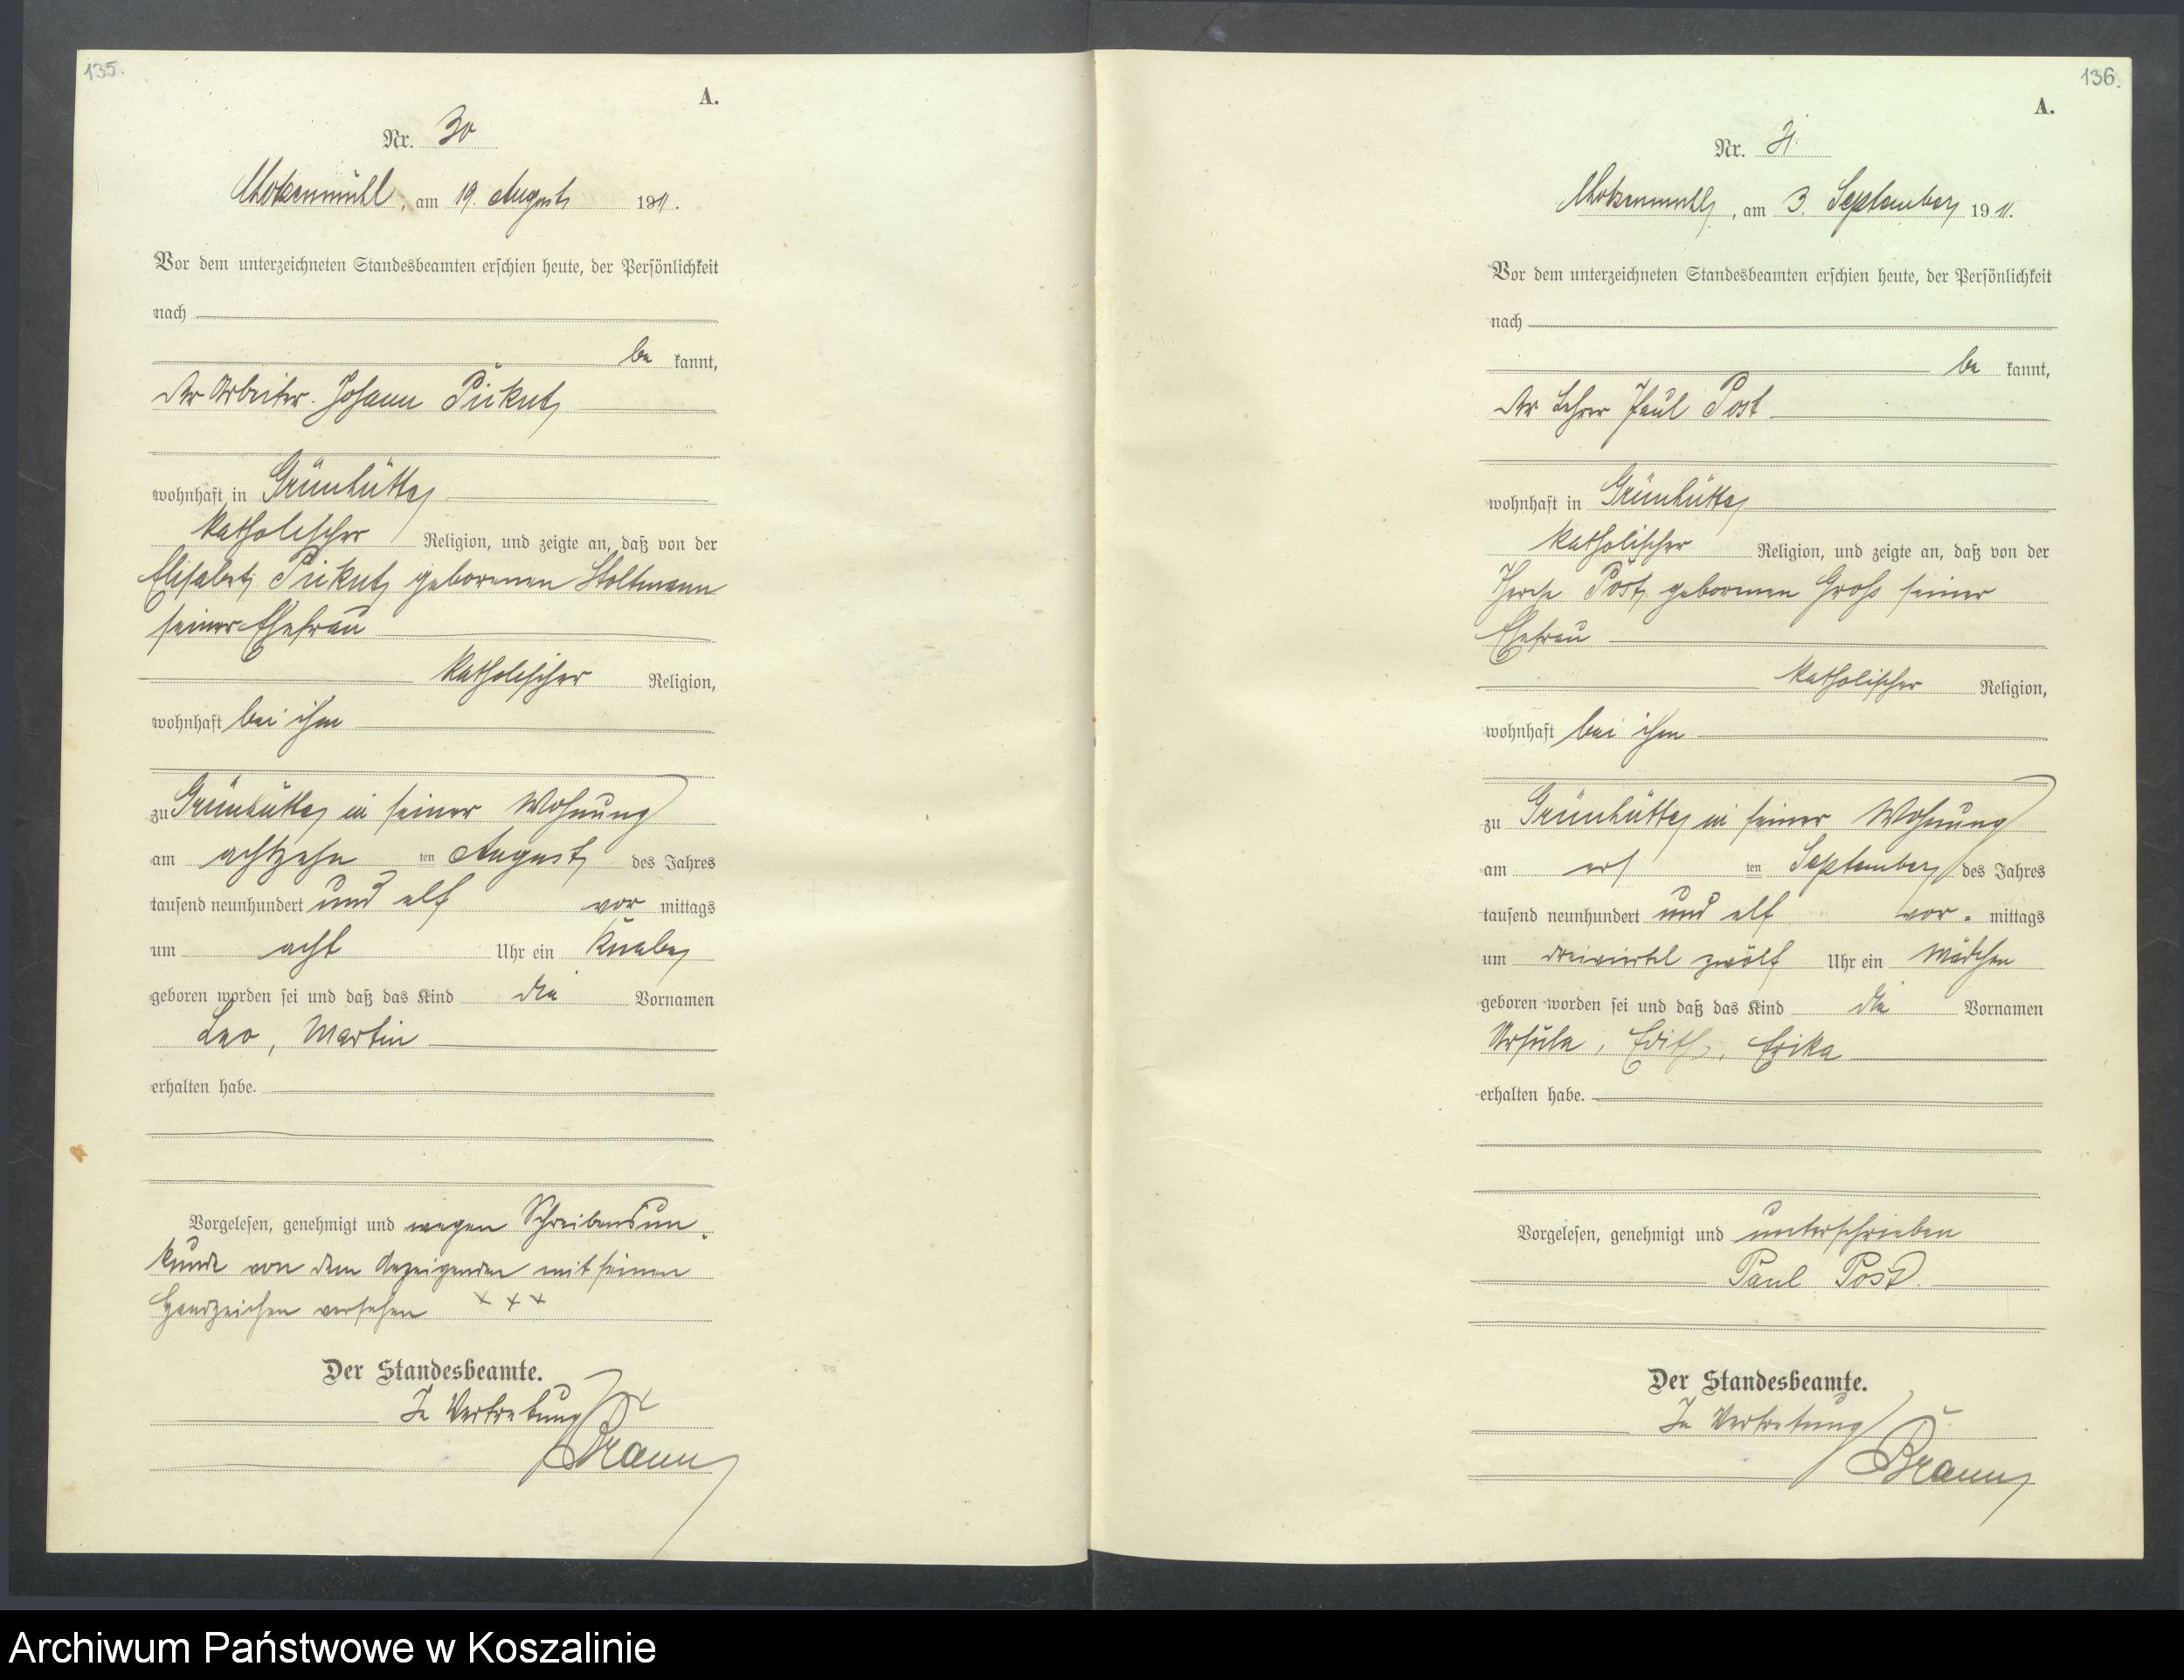 135.
A.
Nr. 30
Chotzenmühl, am 19. August 1911.
Vor dem unterzeichneten Standesbeamten erschien heute, der Persönlichkeit
nach
be kannt,
der Arbeiter Johann
wohnhaft in Grünhütte
katholischer Religion, und zeigte an, daß von der
geborenen Stoltmann
seiner Ehefrau
katholischer Religion,
wohnhaft bei ihm
zu Grünhütte in seiner Wohnung
am achtzehn ten August des Jahres
tausend neunhundert und elf vor mittags
um acht Uhr ein Knabe
geboren worden sei und daß das Kind die Vornamen
Leo, Martin
erhalten habe.
Vorgelesen, genehmigt und wegen Schreibensun-
kunde von dem Anzeigenden mit seinem
Handzeichen versehen + + +
Der Standesbeamte.
In Vertretung
Braun
136.
A.
Nr. 31.
Chotzenmühl, am 3. September 1911.
Vor dem unterzeichneten Standesbeamten erschien heute, der Persönlichkeit
nach
be kannt,
der Lehrer Paul Post
wohnhaft in Grünhütte
katholischer Religion, und zeigte an, daß von der
Post geborenen Groß seiner
Ehefrau
katholischer Religion,
wohnhaft bei ihm
zu Grünhütte in seiner Wohnung
am ers ten September des Jahres
tausend neunhundert und elf vor mittags
um dreiviertel zwölf Uhr ein Mädchen
geboren worden sei und daß das Kind die Vornamen
Ursula, Edith, Erika
erhalten habe.
Vorgelesen, genehmigt und unterschrieben
Paul Post.
Der Standesbeamte.
In Vertretung
Braun
Archiwum Państwowe w Koszalinie